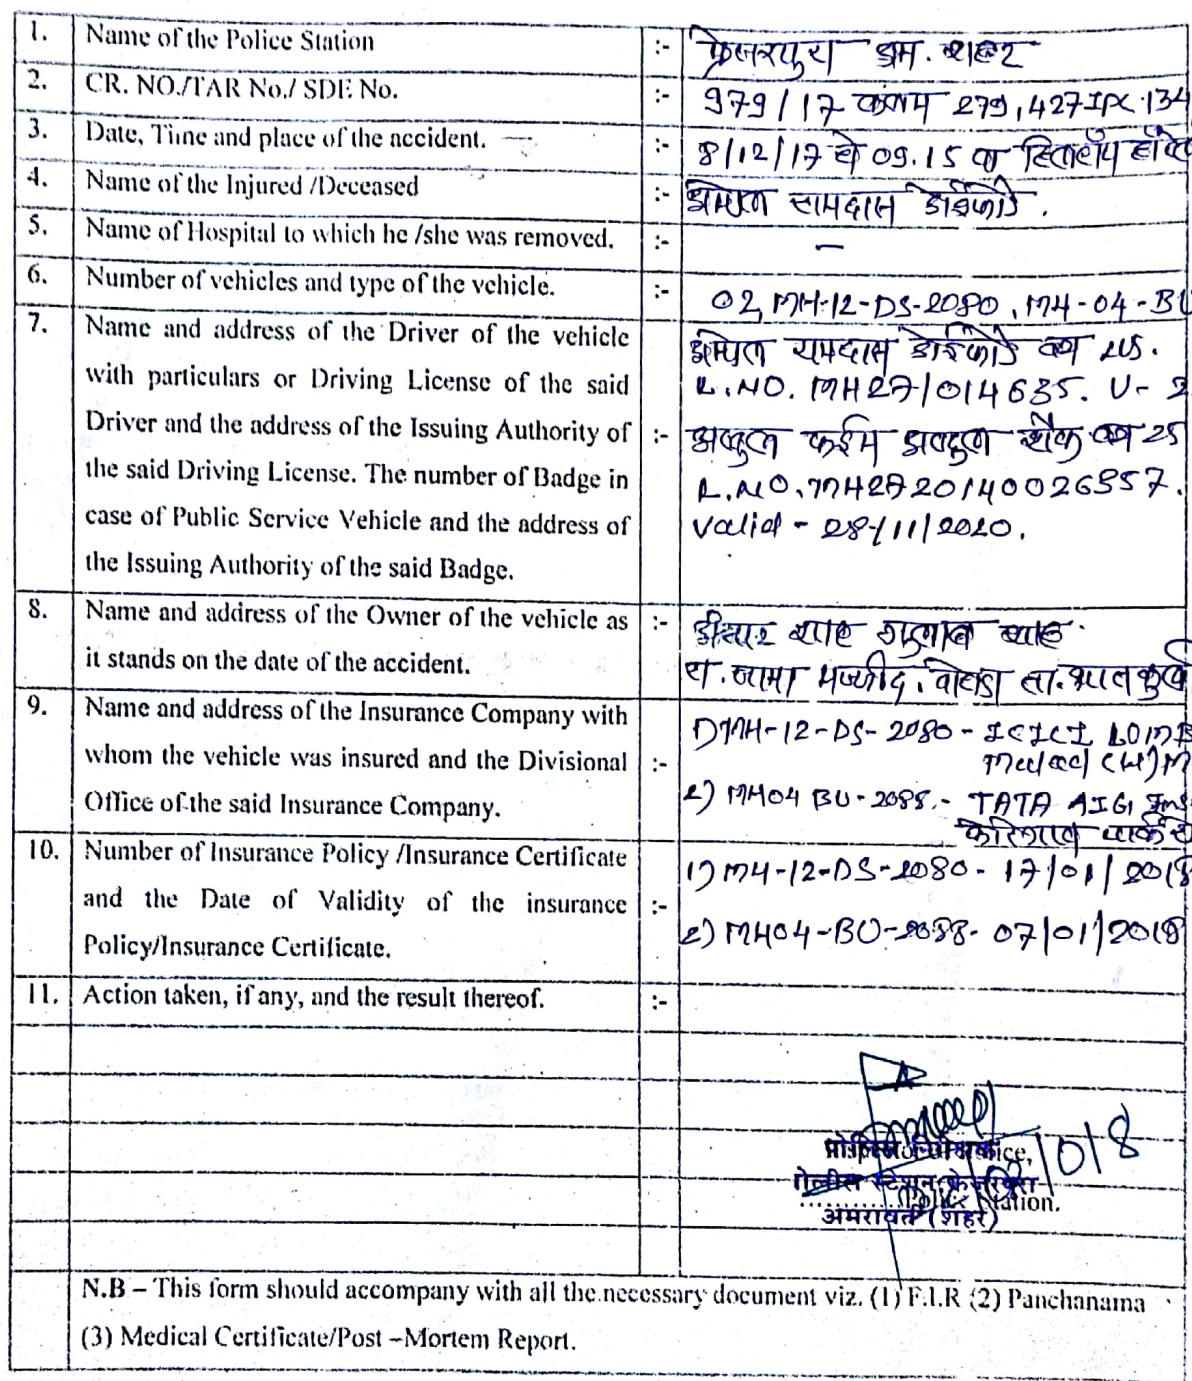 1. Name of the Police Station :- फ्रेजरपुरा अम. शहर
2. CR. NO./TAR No./ SDE No. :- 979/17 कलम 279,427 IPC 134
3. Date, Time and place of the accident. :- 8/12/17 चे 09.15 वा
4. Name of the Injured /Deceased :-
5. Name of Hospital to which he /she was removed. :- –
6. Number of vehicles and type of the vehicle. :- 02, MH-12-DS-2080, MH-04-BU
7. Name and address of the Driver of the vehicle
with particulars or Driving License of the said
Driver and the address of the Issuing Authority of :-
the said Driving License. The number of Badge in
case of Public Service Vehicle and the address of
the Issuing Authority of the said Badge.
रामदास
L.NO. MH27/014635. V- 2
अब्दुल कईम अब्दुल वय 25
L.NO. MH2720140026957.
valid - 28/11/2020.
8. Name and address of the Owner of the vehicle as :-
it stands on the date of the accident.
शाह गुलाब शाह.
रा. जामा मज्जीद. ता. भातकुली
9. Name and address of the Insurance Company with
whom the vehicle was insured and the Divisional :-
Office of the said Insurance Company.
1) MH-12-DS-2080 - ICICI LOMB
2) MH04 BU-2088.- TATA AIG Ins
10. Number of Insurance Policy /Insurance Certificate
and the Date of Validity of the insurance :-
Policy/Insurance Certificate.
1) MH-12-DS-2080- 17/01/2018
2) MH04-BU-2088- 07/01/2018
11. Action taken, if any, and the result thereof. :-
पोलिस निरीक्षक
पोलीस स्टेशन फ्रेजरपुरा
Police Station.
अमरावती (शहर)
N.B – This form should accompany with all the necessary document viz. (1) F.I.R (2) Panchanama
(3) Medical Certificate/Post –Mortem Report.